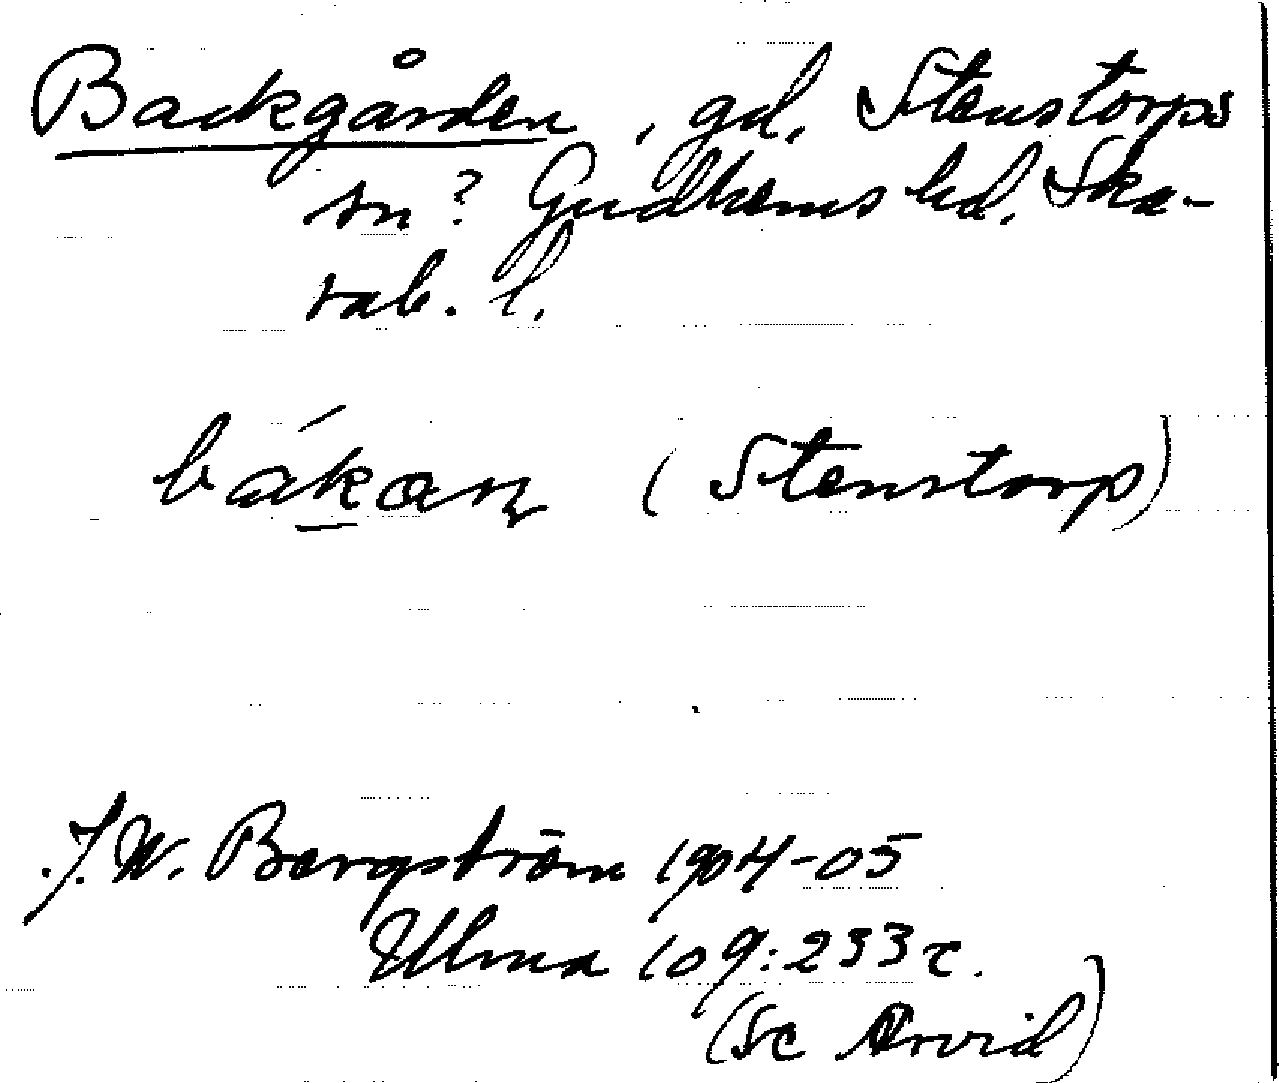 Backgården, gd, Stenstorps
sn? Gudhems hd, Ska-
rab. l.
bákan (Stenstorp)
J. W. Bergström 1904-05
Ulma 109:233 c.
(Se Arvid)